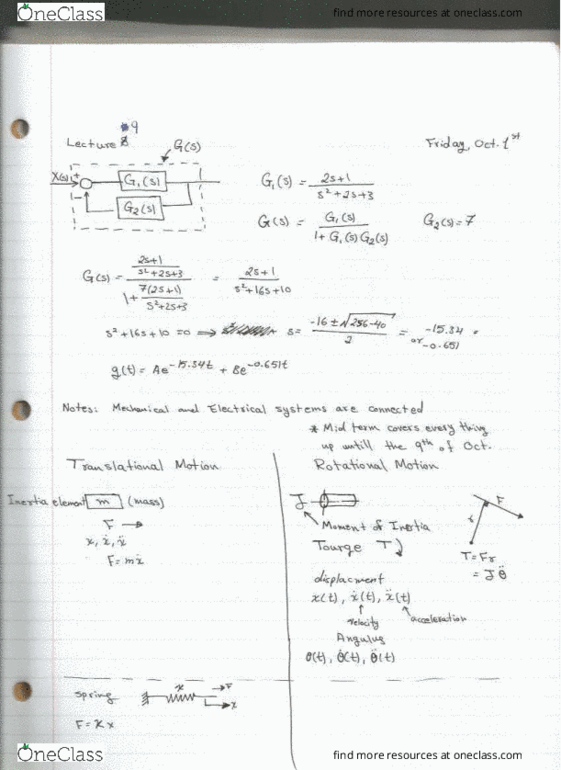 OneClass
find more resources at oneclass.com
#9
Lecture
G(s)
Friday, Oct. 1st
X(s) +
G₁(s)
-
G₂(s)
G₁(s) = (2s+1)/(s²+2s+3)
G(s) = G₁(s)/(1+G₁(s)G₂(s)) G₂(s)=7
G(s) = ((2s+1)/(s²+2s+3))/(1+7(2s+1)/(s²+2s+3)) = (2s+1)/(s²+16s+10)
s²+16s+10=0 ⟹ s= (-16±√(256-40))/2 = -15.34 or -0.651
g(t) = Ae^(-15.34t) + Be^(-0.651t)
Notes: Mechanical and Electrical systems are connected
* Mid term covers every thing
up untill the 9th of Oct.
Translational Motion
Inertia element m (mass)
F →
x, ẋ, ẍ
F = mẍ
Rotational Motion
J
Moment of Inertia
Tourge T
F
r
T = Fr
= Jθ̈
displacment
x(t), ẋ(t), ẍ(t)
velocity
acceleration
Angulus
θ(t), θ̇(t), θ̈(t)
spring
x
F
x
F = Kx
OneClass
find more resources at oneclass.com